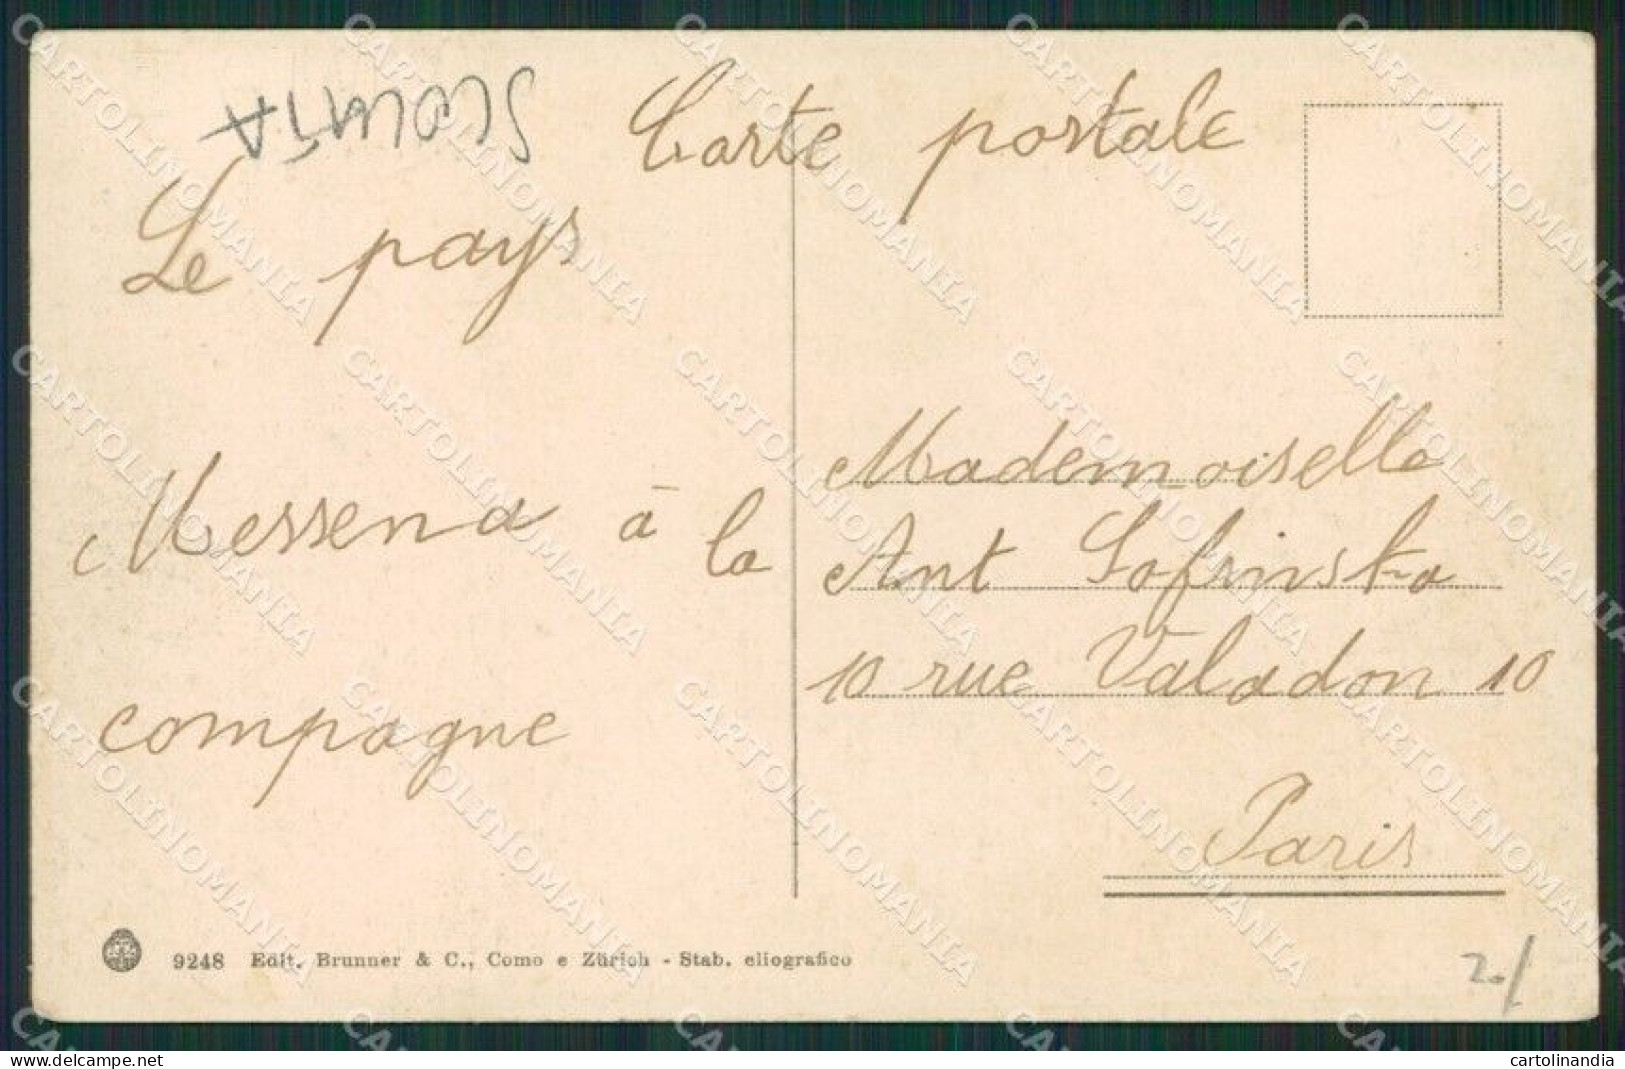 SCONTA
Carte postale
Le pays
Messena à la
compagne
Mademoiselle
Ant Sofinska
10 rue Valadon 10
Paris
9248 Edit. Brunner & C., Como e Zürich - Stab. eliografico
2./
CARTOLINOMANIA
cartolinandia